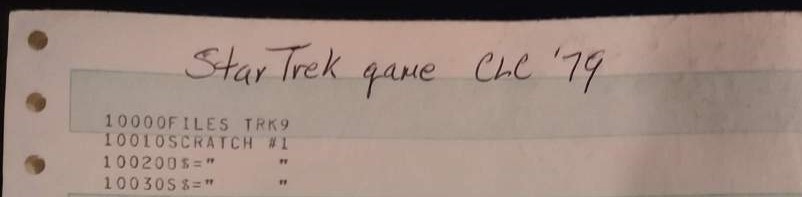 Star Trek game CLC '79
10000FILES TRK9
10010SCRATCH #1
10020O$="        "
10030S$="        "